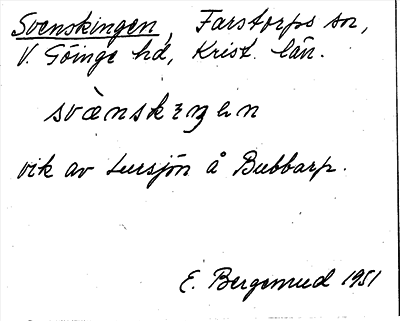 Svenskingen, Farstorps sn,
V. Göinge hd, Krist. län.
svènskɩŋən
vik av Lursjön å Bubbarp.
E. Bergsmud 1951